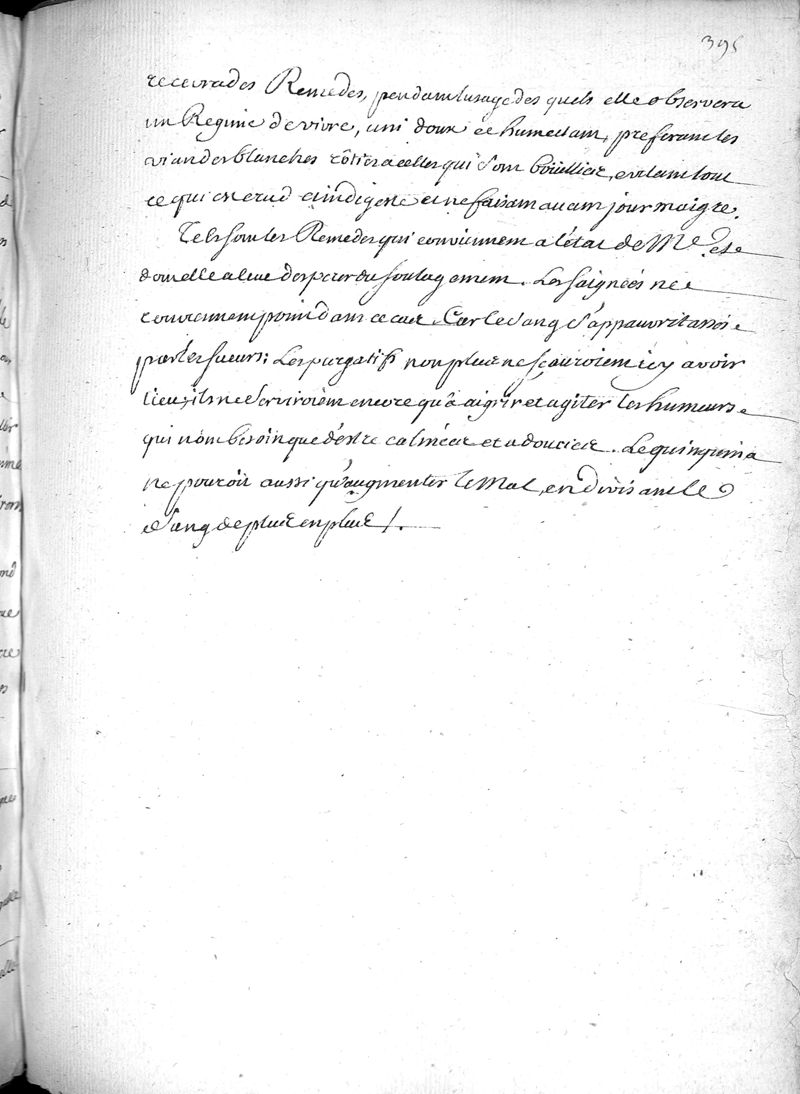 395
recevra des Remedes, pendant lusage des quels elle observera
un Regime de vivre, uni doux et humectant, preferant les
viandes blanches rôties a celles qui sont boüillies, evitant tout
ce qui est crud et indigeste et ne faisant aucun jour maigre.
Tels sont les Remedes qui conviennent a létat de Me
dont elle a lieu desperer du soulagement. Les saignées ne
conviennent point dans ce cas. Car le sang s'appauvrit assés
par les sueurs; Les purgatifs non plus ne sçauroient icy avoir
lieu, ils ne serviroient encore qu'à aigrir et agiter les humeurs
qui n'ont besoin que d'estre calmées et adoucies. Le quinquina
ne pouroit aussi qu'augmenter le Mal, en divisant le
sang de plus en plus /.